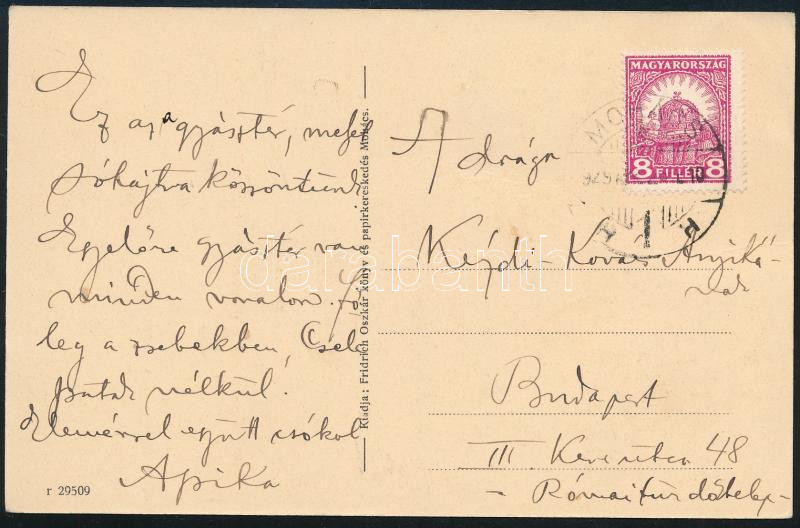 Ez az a gyásztér, melyet
sóhajtva köszöntünk
Egyelőre gyásztér van
minden vonalon. Fő
leg a zsebekben, Csele
patak nélkül!
Elemérrel együtt csókol
Apika
r 29509
Kiadja: Fridrich Oszkár könyv és papirkereskedés Mohács.
MAGYARORSZÁG
8 FILLÉR 8
A drága
Kézdi-Kovács Anyiká
nak
Budapest
III. Kerület 48
- Római fürdőtelep -
darabanth